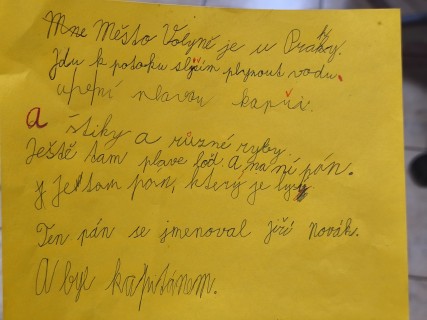 Mne Město Volyně je u Prahy.
Jdu k potoku slyším plynout vodu.
u plavou kapři.
A štiky a různé ryby.
Ještě tam plave loď. A na ní pán.
Je tam pán, který je lysý
Ten pán se jmenoval jiří novák.
A byl kapitánem.